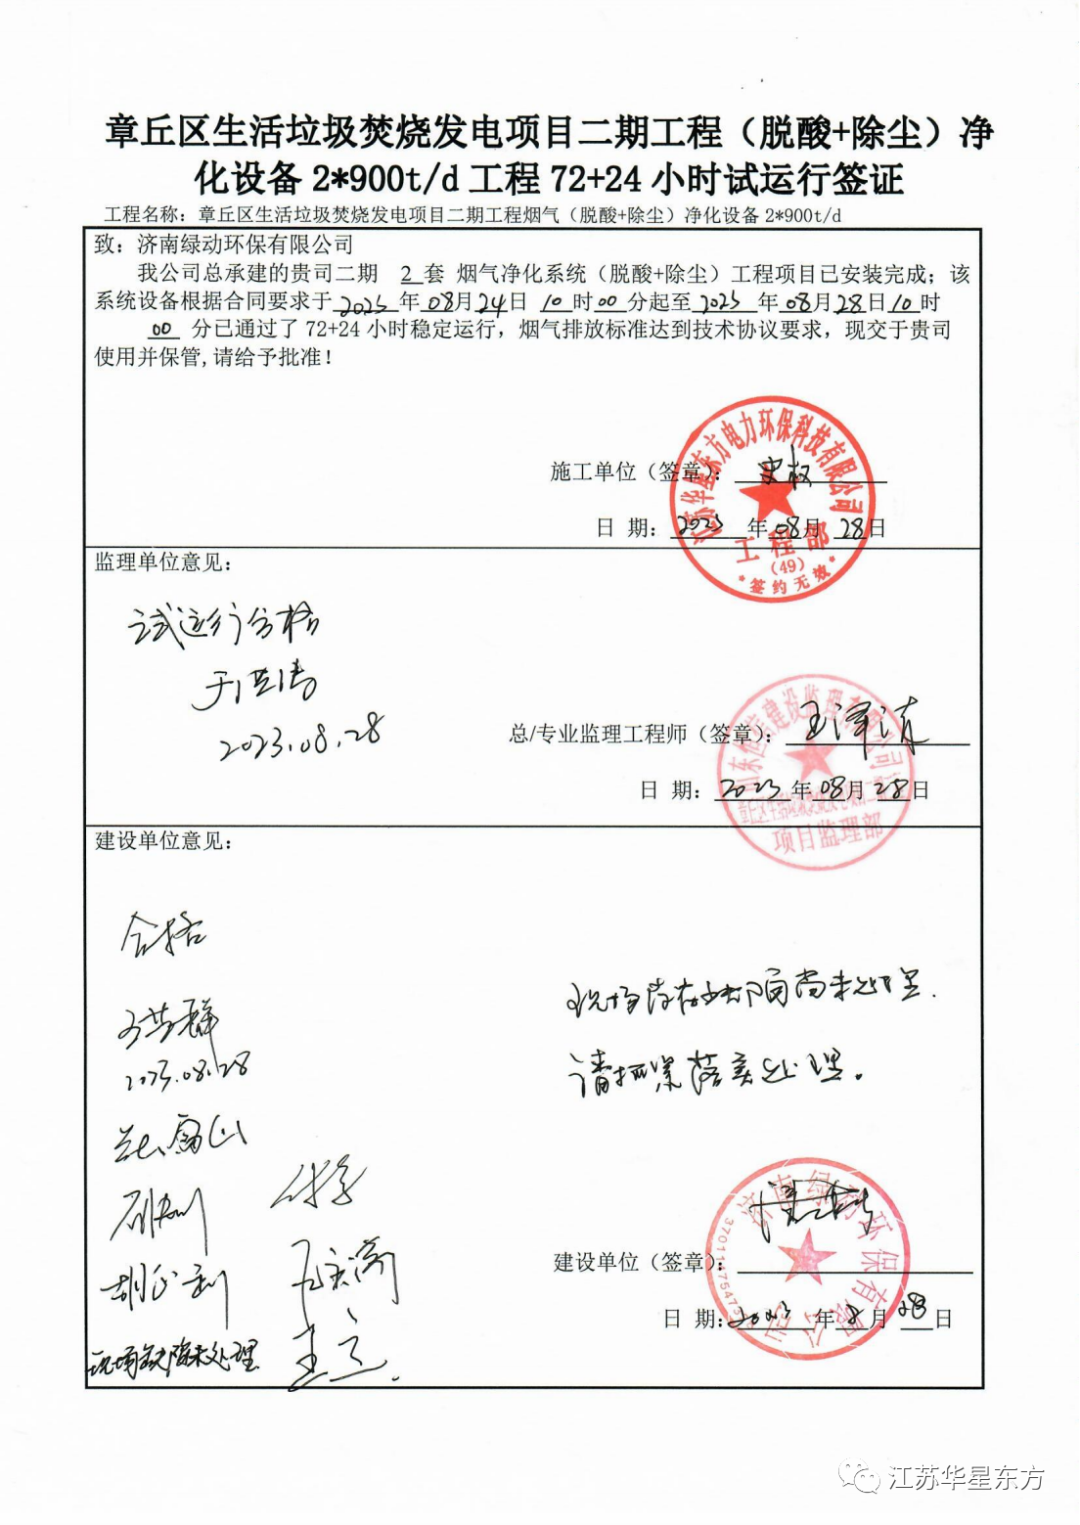 章丘区生活垃圾焚烧发电项目二期工程（脱酸+除尘）净
化设备 2*900t/d 工程 72+24 小时试运行签证
工程名称：章丘区生活垃圾焚烧发电项目二期工程烟气（脱酸+除尘）净化设备 2*900t/d
致：济南绿动环保有限公司
我公司总承建的贵司二期 2 套 烟气净化系统（脱酸+除尘）工程项目已安装完成；该
系统设备根据合同要求于 2023 年 08 月 24 日 10 时 00 分起至 2023 年 08 月 28 日 10 时
00 分已通过了 72+24 小时稳定运行，烟气排放标准达到技术协议要求，现交于贵司
使用并保管,请给予批准！
江苏华星东方电力环保科技有限公司
施工单位（签章）：
日 期：2023 年 08 月 28 日
工程部
（49）
*签约无效*
监理单位意见：
试运行合格
2023.08.28
总/专业监理工程师（签章）：
日 期：2023 年 08 月 28 日
项目监理部
建设单位意见：
合格
现场存在缺陷尚未处理.
2023.08.28
请抓紧落实处理。
济南绿动环保有限公司
建设单位（签章）：
日 期：2023 年 8 月 28 日
现场缺陷未处理
江苏华星东方